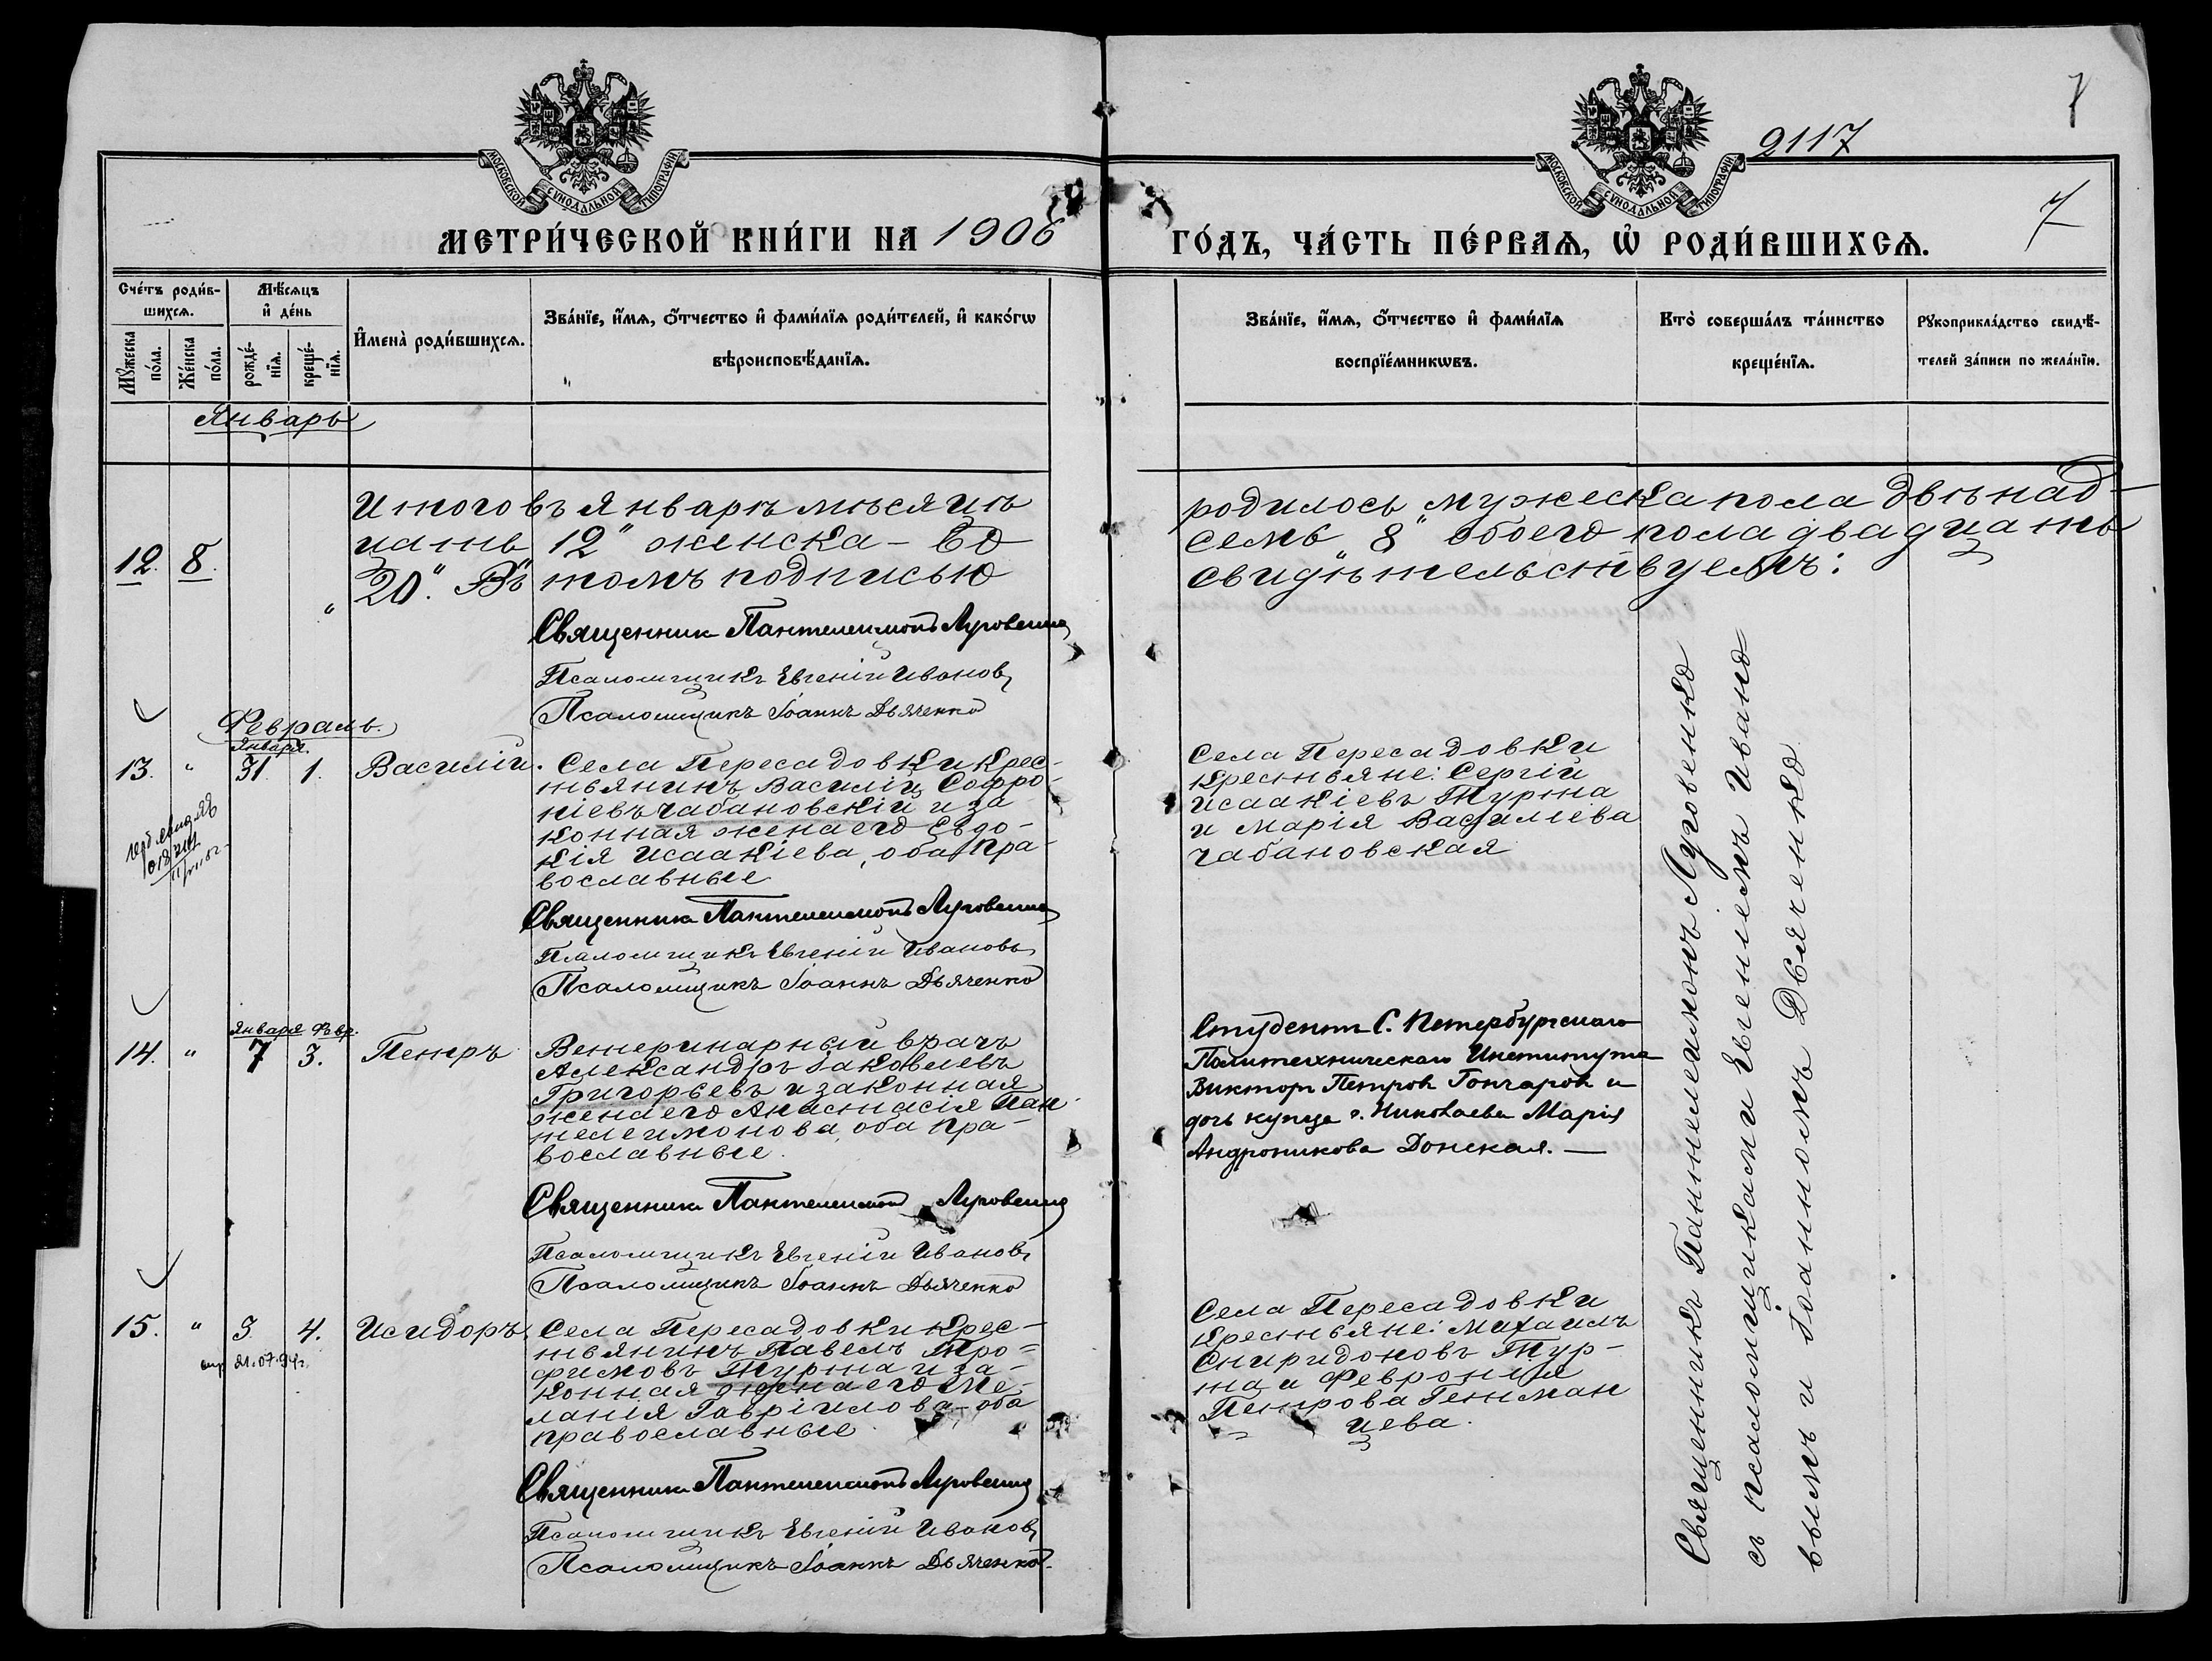 7
2117
7
МОСКОВСКОЙ СѴНОДАЛЬНОЙ ТИПОГРАФІИ
МОСКОВСКОЙ СѴНОДАЛЬНОЙ ТИПОГРАФІИ
МЕТРИ́ЧЕСКОЙ КНИ́ГИ НА 1906
ГО́ДЪ, ЧА́СТЬ ПЕ́РВАѦ, Ѡ҆ РОДИ́ВШИХСѦ.
Сче́тъ роди́в-
шихсѧ.
Мꙋ́жеска
по́ла.
Же́нска
по́ла.
Мѣ́сѧцъ
и҆ де́нь
рожде́-
нїѧ.
креще́-
нїѧ.
И҆мена̀ роди́вшихсѧ.
Зва́нїе, и҆́мѧ, ѻ҆́тчество и҆ фами́лїѧ роди́телей, и҆ како́гѡ
вѣроисповѣ́данїѧ.
Зва́нїе, и҆́мѧ, ѻ҆́тчество и҆ фами́лїѧ
воспрїе́мникѡвъ.
Кто̀ соверша́лъ та́инство
креще́нїѧ.
Рꙋкоприкла́дство свидѣ́-
телей за́писи по жела́нїю.
Январь
Итого въ Январѣ мѣсяцѣ родилось мужеска пола двѣнад-
12. 8. цать 12" женска – во семь 8" обоего пола двадцать
20". Въ томъ подписью свидѣтельствуемъ:
Священник Пантелеимонъ Луговенко
Псаломщикъ Евгеній Ивановъ
Псаломщикъ Іоаннъ Дьяченко
Февраль.
Января.
13. " 31. 1. Василій. Села Пересадовки крес-
тьянинъ Василій Софро-
ніевъ Чабановскій и за-
конная жена его Евдо-
кія Исаакіева, оба пра-
вославные
Священник Пантелеимонъ Луговенко
Псаломщикъ Евгеній Ивановъ
Псаломщикъ Іоаннъ Дьяченко
Села Пересадовки
крестьяне: Сергій
Исаакіевъ Турта
и Марія Василіева
Чабановская
Января Февр.
14. " 7 3. Петръ Ветеринарный врачъ
Александръ Іаковлевъ
Григорьевъ и законная
жена его Анастасія Пан-
телеимонова, оба пра-
вославные.
Священник Пантелеимонъ Луговенко
Псаломщикъ Евгеній Ивановъ
Псаломщикъ Іоаннъ Дьяченко
Студентъ С. Петербургскаго
Политехническаго Института
Викторъ Петровъ Гончаровъ и
дочь купца г. Николаева Марія
Андроникова Донская. —
15. " 3 4. Исидоръ. Села Пересадовки крес-
21.07.94г. тьянинъ Павелъ Тро-
фимовъ Турта и за-
конная жена его Ме-
ланія Гавріилова – оба
православные
Священник Пантелеимонъ Луговенко
Псаломщикъ Евгеній Ивановъ
Псаломщикъ Іоаннъ Дьяченко.
Села Пересадовки
крестьяне: Михаилъ
Спиридоновъ Тур-
та и Февронія
Петрова Гетман
цева.
Священникъ Пантелеимонъ Луговенко
съ псаломщиками Евгеніемъ Ивано
вымъ и Іоанномъ Дьяченко